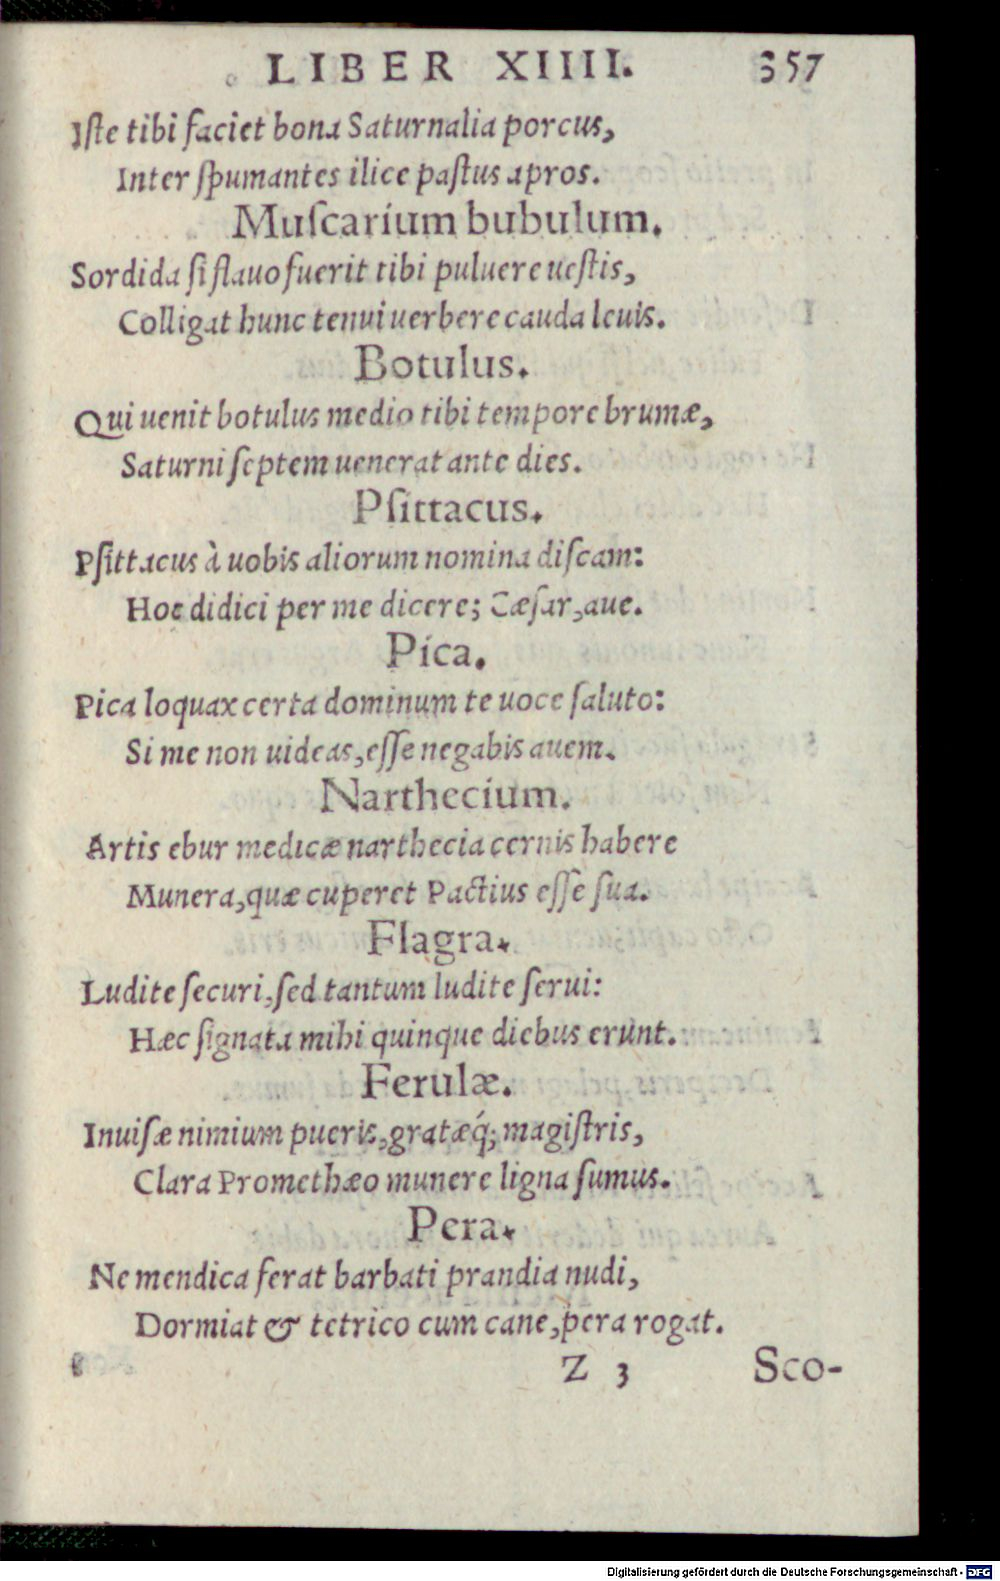 LIBER XIIII. 357
Iſte tibi faciet bona Saturnalia porcus,
Inter ſpumantes ilice paſtus apros.
Muſcarium bubulum.
Sordida ſi flauo fuerit tibi puluere ueſtis,
Colligat hunc tenui uerbere cauda leuis.
Botulus.
Qui uenit botulus medio tibi tempore brumæ,
Saturni ſeptem uenerat ante dies.
Pſittacus.
Pſittacus à uobis aliorum nomina diſcam:
Hoc didici per me dicere; Cæſar, aue.
Pica.
Pica loquax certa dominum te uoce ſaluto:
Si me non uideas, eſſe negabis auem.
Narthecium.
Artis ebur medicæ narthecia cernis habere
Munera, quæ cuperet Pactius eſſe ſua.
Flagra.
Ludite ſecuri, ſed tantum ludite ſerui:
Hæc ſignata mihi quinque diebus erunt.
Ferulæ.
Inuiſæ nimium pueris, gratæq́; magiſtris,
Clara Promethæo munere ligna ſumus.
Pera.
Ne mendica ferat barbati prandia nudi,
Dormiat & tetrico cum cane, pera rogat.
Z 3 Sco-
Digitalisierung gefördert durch die Deutsche Forschungsgemeinschaft - DFG